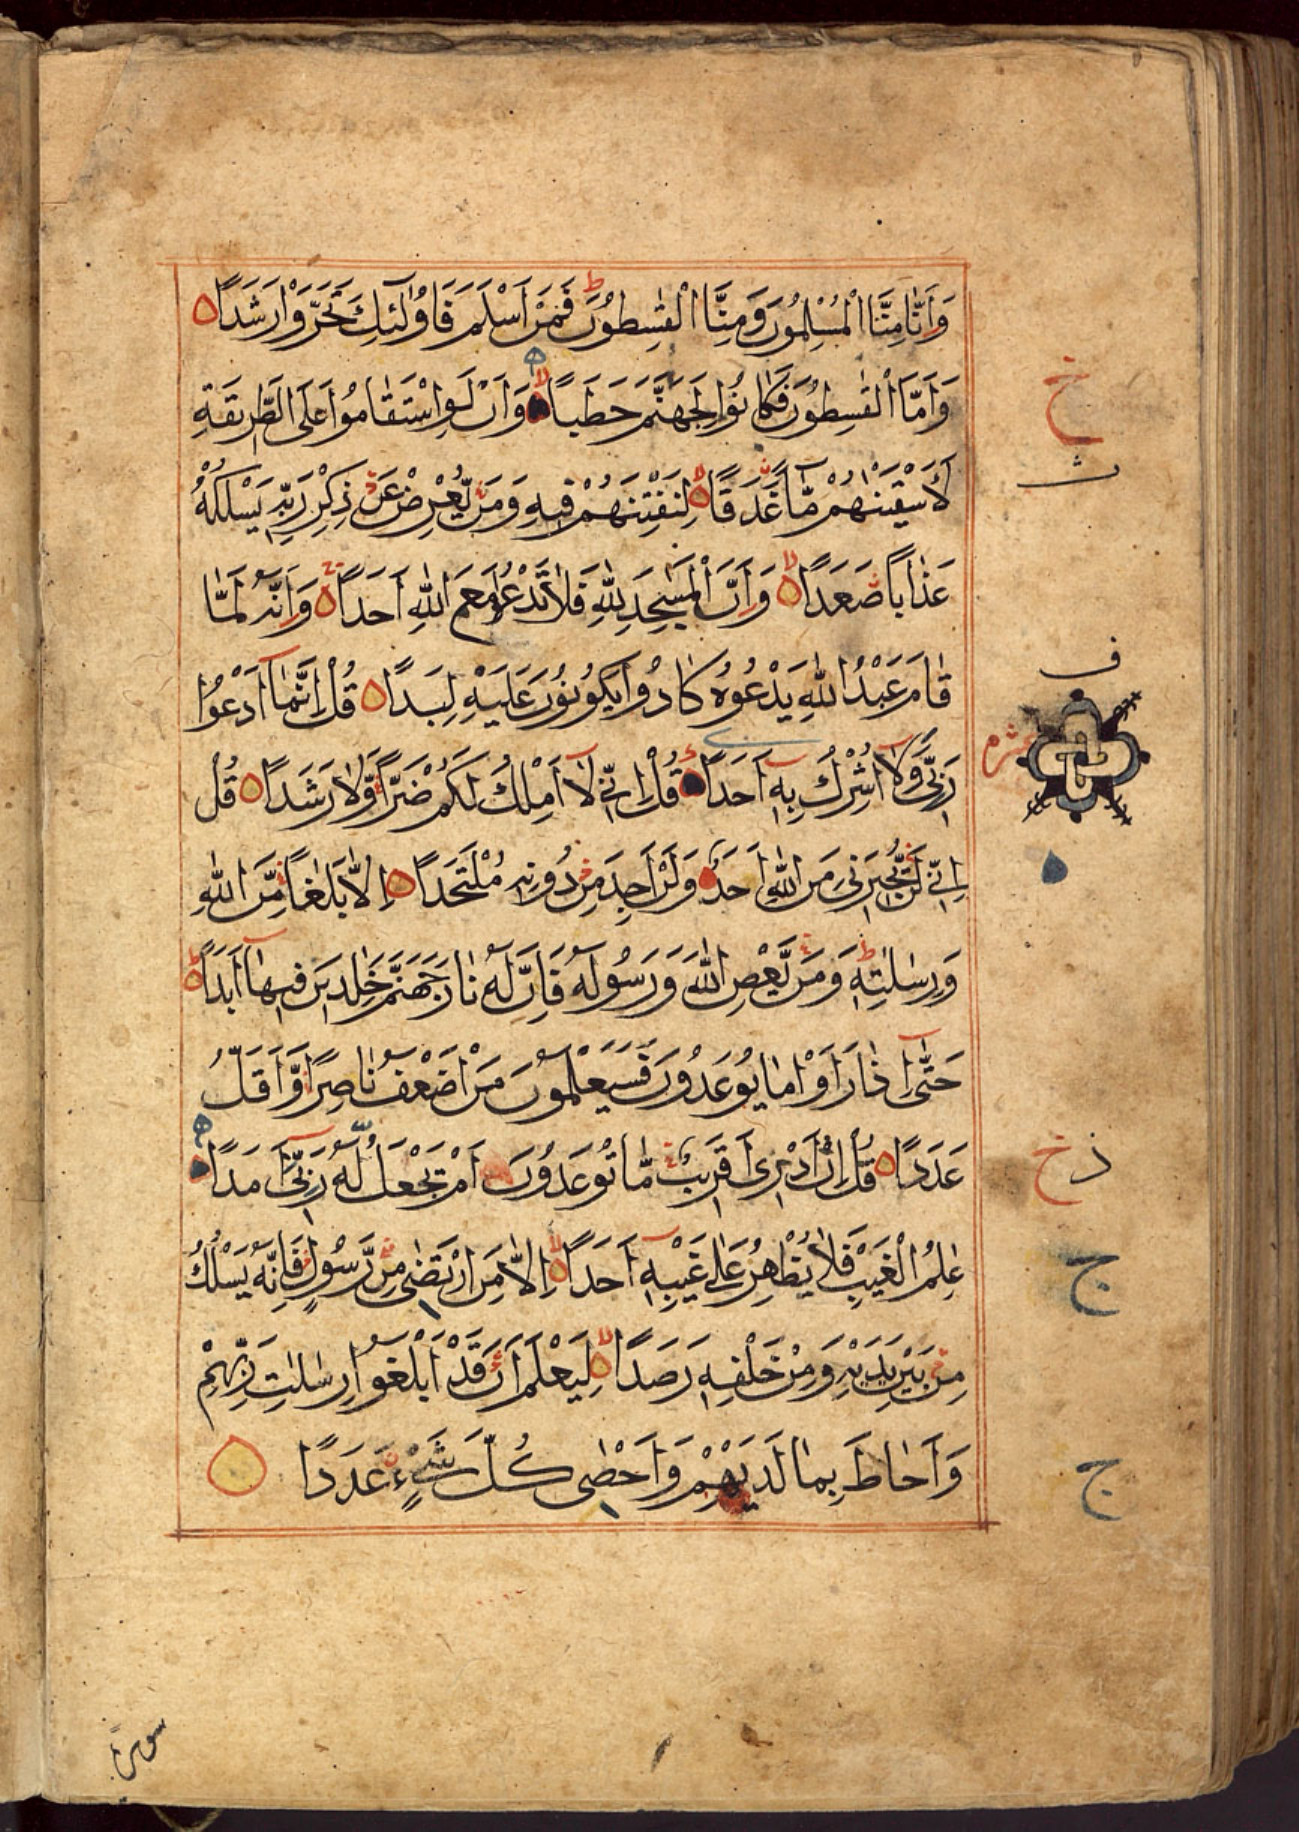 وَاَنَّا مِنَّا الْمُسْلِمُوْنَ وَمِنَّا الْقٰسِطُوْنَ ؕ فَمَنْ اَسْلَمَ فَاُولٰٓئِكَ تَحَرَّوْا رَشَدًا
وَاَمَّا الْقٰسِطُوْنَ فَكَانُوْا لِجَهَنَّمَ حَطَبًا وَاَنْ لَّوِ اسْتَقَامُوْا عَلَى الطَّرِيْقَةِ
لَاَسْقَيْنٰهُمْ مَّآءً غَدَقًا لِنَفْتِنَهُمْ فِيْهِ وَمَنْ يُّعْرِضْ عَنْ ذِكْرِ رَبِّهٖ يَسْلُكْهُ
عَذَابًا صَعَدًا وَاَنَّ الْمَسٰجِدَ لِلّٰهِ فَلَا تَدْعُوْا مَعَ اللّٰهِ اَحَدًا وَاَنَّهٗ لَمَّا
قَامَ عَبْدُ اللّٰهِ يَدْعُوْهُ كَادُوْا يَكُوْنُوْنَ عَلَيْهِ لِبَدًا قُلْ اِنَّمَآ اَدْعُوْا
رَبِّىْ وَلَآ اُشْرِكُ بِهٖٓ اَحَدًا قُلْ اِنِّىْ لَآ اَمْلِكُ لَكُمْ ضَرًّا وَّلَا رَشَدًا قُلْ
اِنِّىْ لَنْ يُّجِيْرَنِىْ مِنَ اللّٰهِ اَحَدٌ وَلَنْ اَجِدَ مِنْ دُوْنِهٖ مُلْتَحَدًا اِلَّا بَلٰغًا مِّنَ اللّٰهِ
وَرِسٰلٰتِهٖ ؕ وَمَنْ يَّعْصِ اللّٰهَ وَرَسُوْلَهٗ فَاِنَّ لَهٗ نَارَ جَهَنَّمَ خٰلِدِيْنَ فِيْهَآ اَبَدًا ؕ
حَتّٰٓى اِذَا رَاَوْا مَا يُوْعَدُوْنَ فَسَيَعْلَمُوْنَ مَنْ اَضْعَفُ نَاصِرًا وَّاَقَلُّ
عَدَدًا قُلْ اِنْ اَدْرِىْٓ اَقَرِيْبٌ مَّا تُوْعَدُوْنَ اَمْ يَجْعَلُ لَهٗ رَبِّىْٓ اَمَدًا
عٰلِمُ الْغَيْبِ فَلَا يُظْهِرُ عَلٰى غَيْبِهٖٓ اَحَدًا اِلَّا مَنِ ارْتَضٰى مِنْ رَّسُوْلٍ فَاِنَّهٗ يَسْلُكُ
مِنْ بَيْنِ يَدَيْهِ وَمِنْ خَلْفِهٖ رَصَدًا لِيَعْلَمَ اَنْ قَدْ اَبْلَغُوْا رِسٰلٰتِ رَبِّهِمْ
وَاَحَاطَ بِمَا لَدَيْهِمْ وَاَحْصٰى كُلَّ شَىْءٍ عَدَدًا
خ
ث
ف
ذ خ
ج
ج